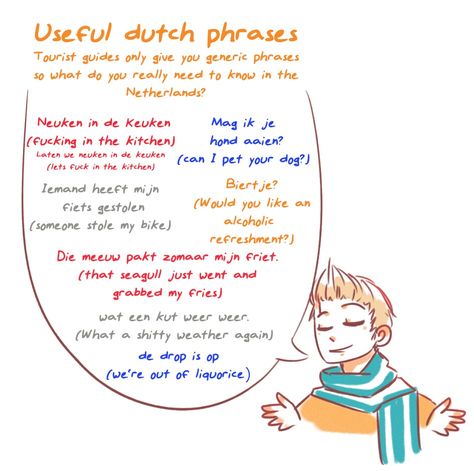 Useful dutch phrases
Tourist guides only give you generic phrases
so what do you really need to know in the
Netherlands?
Neuken in de keuken
(fucking in the kitchen)
Laten we neuken in de keuken
(lets fuck in the kitchen)
Mag ik je
hond aaien?
(can I pet your dog?)
Iemand heeft mijn
fiets gestolen
(someone stole my bike)
Biertje?
(Would you like an
alcoholic
refreshment?)
Die meeuw pakt zomaar mijn friet.
(that seagull just went and
grabbed my fries)
wat een kut weer weer.
(What a shitty weather again)
de drop is op
(we're out of liquorice)